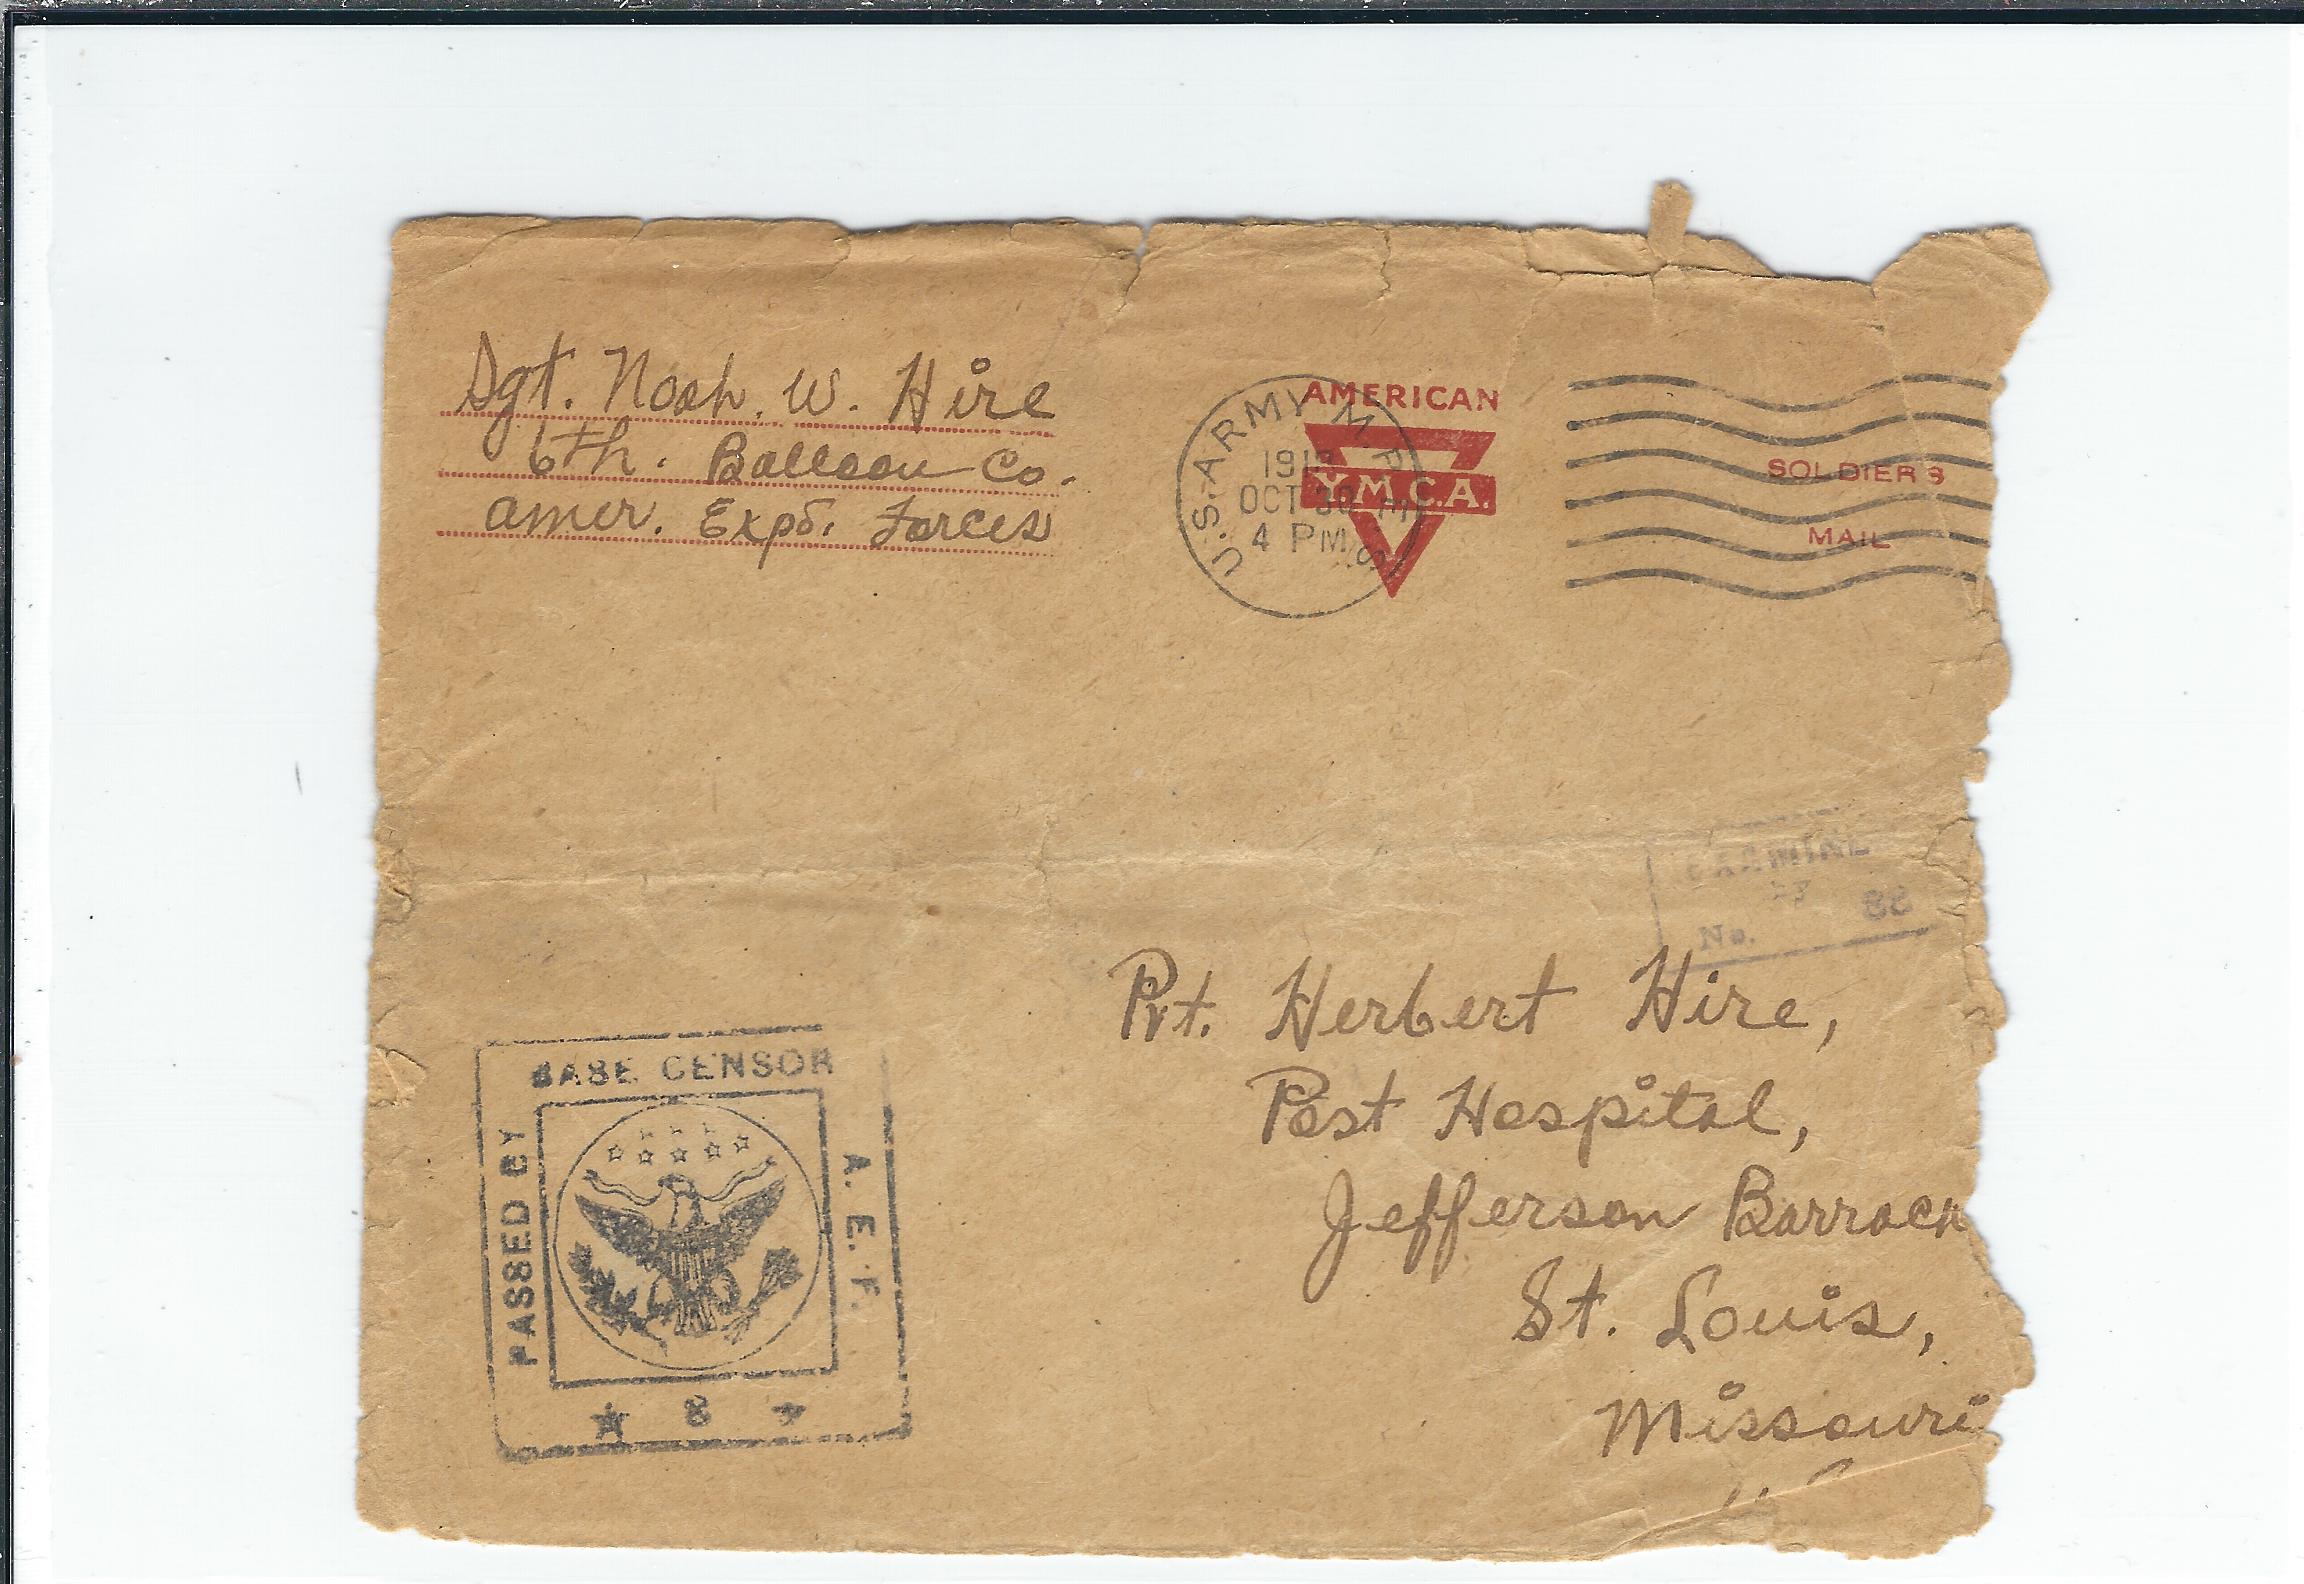 Sgt. Noah. W. Hire
6th. Balloon Co.
Amer. Expd. Forces
U.S. ARMY M.P.E.S
OCT 30
4 PM
AMERICAN
Y.M.C.A.
SOLDIER'S
MAIL
No. 88
Pvt. Herbert Hire,
Post Hospital,
Jefferson Barrack
St. Louis,
Missouri
BASE CENSOR
PASSED BY
A. E. F.
8